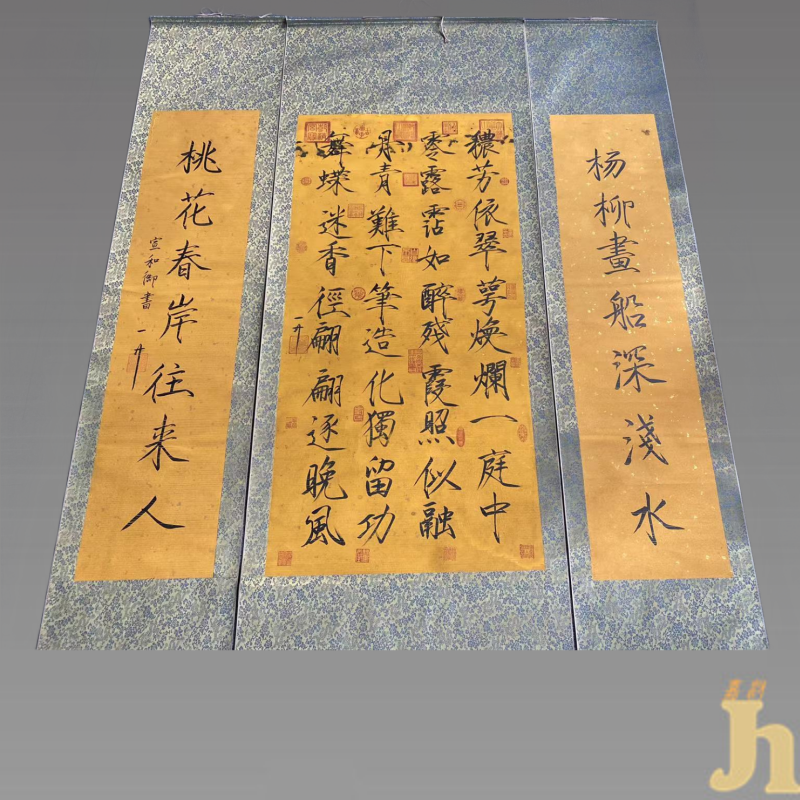 杨柳畫船深淺水
穠芳依翠萼煥爛一庭中
零露霑如醉殘霞照似融
丹青難下筆造化獨留功
舞蝶迷香徑翩翩逐晚風
桃花春岸往来人
宣和御書
jh